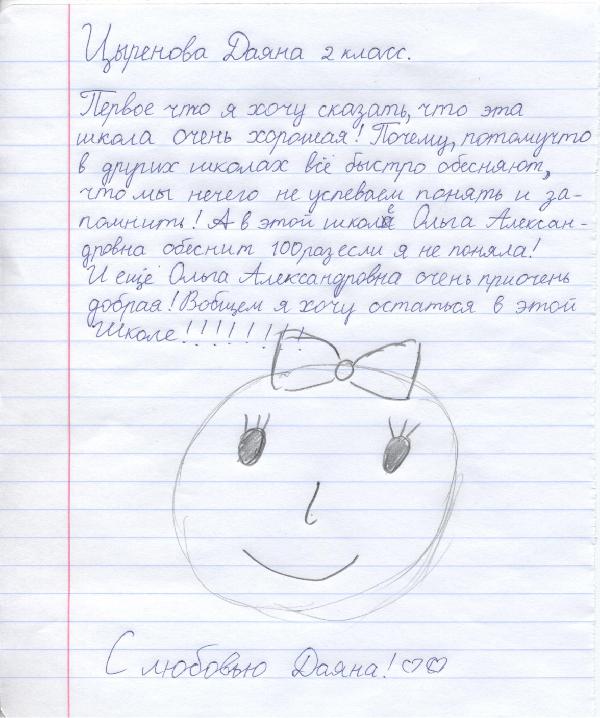 Цыренова Даяна 2 класс.
Первое что я хочу сказать, что эта
школа очень хорошая! Почему, потомучто
в других школах всё быстро обесняют,
что мы нечего не успеваем понять и за-
помнить! А в этой школе Ольга Алексан-
дровна обеснит 100 раз если я не поняла!
И ещё Ольга Александровна очень приочень
добрая! Вобщем я хочу остаться в этой
Школе!!!!!!!!!
С любовью Даяна!♡♡